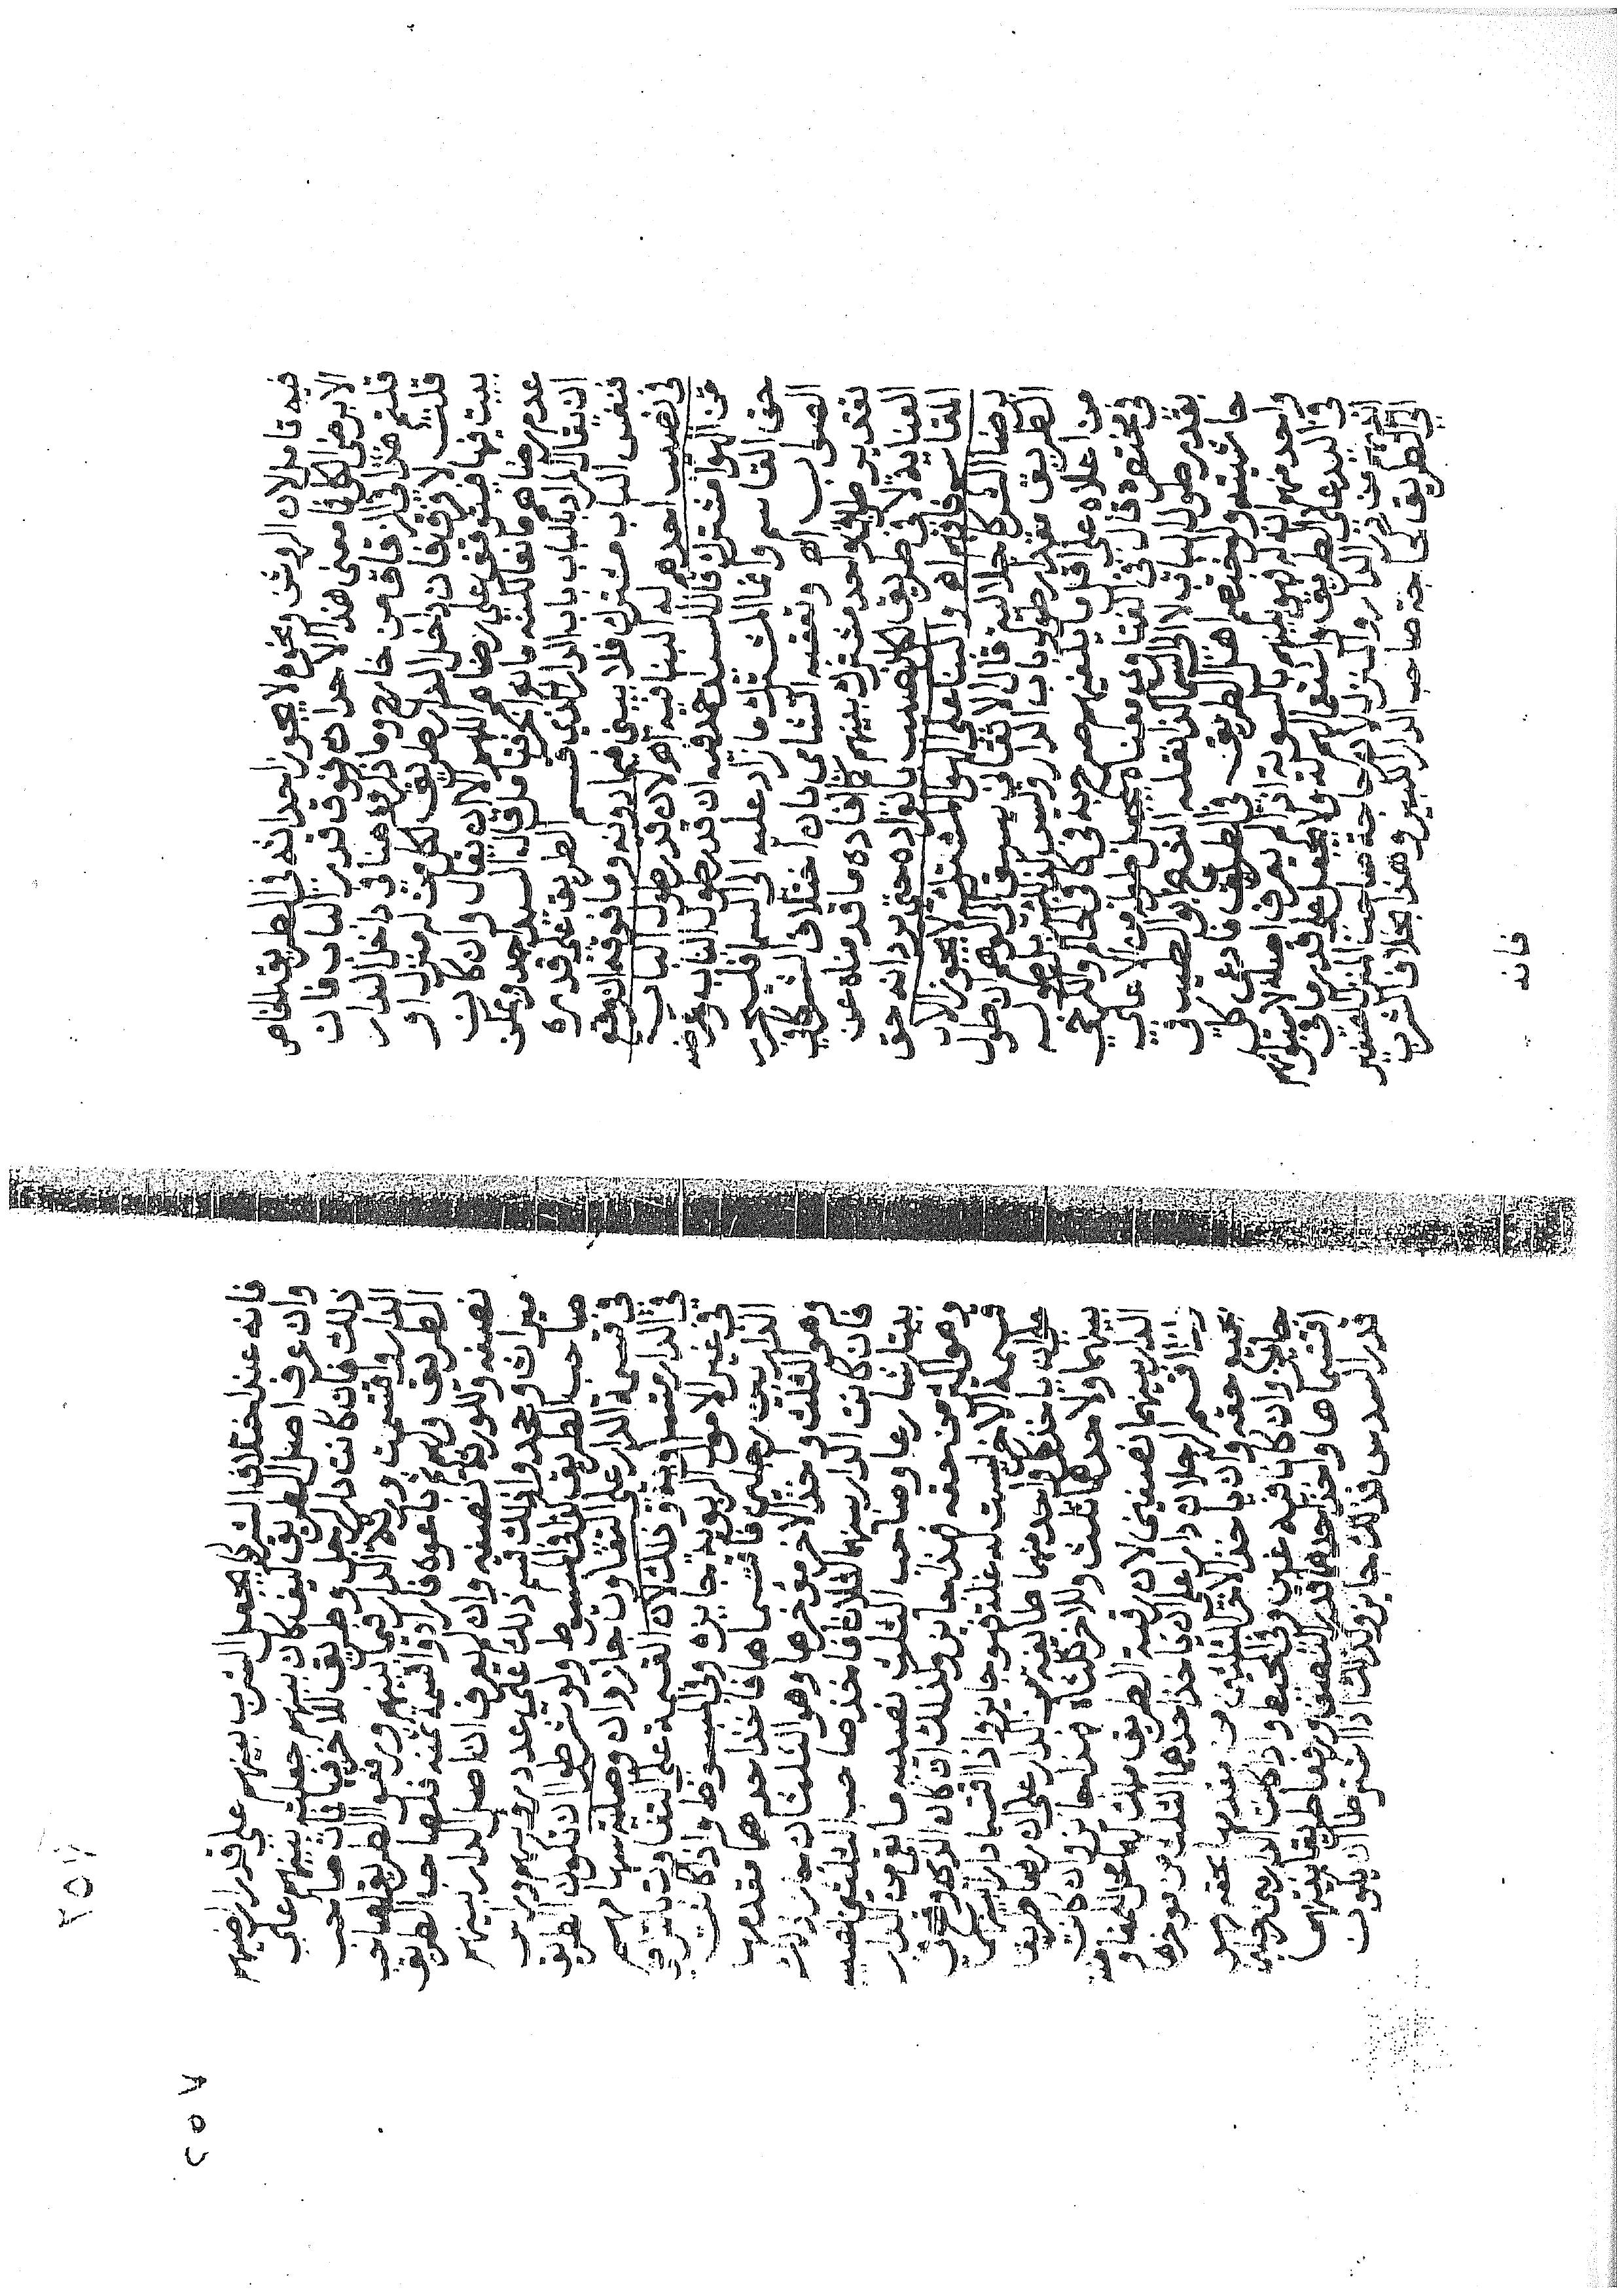 فيه تامل لان الروشن ونحوه لا يجوز احداثه في الطريق الخاص
الا برضى الكل فما معنى هذا الاحداث فوق قدر الباب فان
قلت هذا في الزقاق من خارج وما ذكروه هنا في داخل الدار
قلت لا فرق فان داخل الدار طريق لكل من له منزل او
بيت فيها فيتوقف على رضاهم اللهم الا ان يقال وان كان
عدم رضاهم مانعا لكنه قال السيد احمد ويمكن
ان يقال المراد بالباب باب الدار الذي قسم الطريق على قدره
فنفس الباب مشترك فلا يبنى فيما دونه وما فوقه ان وقع
في نصيب احدهم له البنا فيه اه لان قدر طول الباب
من الهوا مشترك قال السيد احمد فيه ان قدر طول الباب وعرضه
حق القاسم وانما المشترك ما زاد عليه الى السما فليحرر
الصواب اه وتعقبه الشامي بان اختلاف الشركا في
تقدير طريق واحد مشترك بينهم كما افاده ما قدمناه عن
العناية لا في طريق لكل نصيب بانفراده حتى يرد انه حق
المقاسم فافهم اه والبنا على الهوا المشترك لا يجوز الا
برضا الشركا جلالية قال الاتقاني يسبق الى الوهم ان طول
الطريق مقدار طول باب الدار وليس كذلك بل طوله
من اعلاه على اقل ما يكفيهم صرح به في كافي الحاكم والكرخي
في مختصره قال في الفتاوى معناه يجعل طوله من الاعلى
بقدر طول الباب لا الى السما كذا نقله الشيخ ابو الطيب في
حاشيته ولو اختصم اهل الطريق في الطريق فادعى كل
واحد منهم انه له فهو بينهم بالسوية اذا لم يعرف اصله لاستوائهم
في اليد على الطريق واستعمالهم له ولا يجعل على قدر ما في
ايديهم من ذرع الدار والمنزل لان حاجة صاحب المنزل الصغير
الى الطريق كحاجة صاحب الدار الكبير وهذا بخلاف الشرب
فانه
٢٥٧
٢٥٧
فانه عند اختلاف الشركا يجعل الشرب بينهم على قدر اراضيهم
وان عرف اصل الطريق كيف كان بينهم جعلته بينهم على
ذلك فان كانت دار لرجل وطريق للاخر فيها فمات صاحب
الدار واقتسمت ورثة الدار فيما بينهم ورفعوا الطريق لصاحب
الطريق ولهم ثم باعوه فارادوا قسمة ثمنه فلصاحب الطريق
نصفه وللورثة نصفه وان لم يعرف ان اصل الدار بينهم
ميراث وجحدوا ذلك قسم ذلك على عدد روسهم وراس
صاحب الطريق كذا في المبسوط ولو شرطوا ان تكون الطريق
في قسمة الدار على التفاوت جاز وان وصلية سهامهم
في الدار متساوية وذلك لان القسمة على التفاوت بالتراضي
في غير الاموال الربوية جايزة وفي المبسوط واذا كانت
الدار بين رجلين فاقتسماها فاخذ احدهما مقدمها
وهو الثلث واخذ الاخر مؤخرها وهو الثلثان جاز ذلك
فان كانت الدار بينهما اثلاثا فاخذ صاحب الثلثين نصيبه
بيتا شارعا وصاحب الثلث نصيبه ما بقي من الدار
وهو اكثر من حقه فهذا جايز وكذلك ان كان الذي وقع في
قسمة الاخر ليست له غلة فهو جايز واذا اقتسما دارا بينهما
على ان ياخذ كل واحد منهما طايفة من الدار على ان رفعا طريقا
بينهما ولاحدهما ثلثه وللاخر ثلثاه فهذا جايز وان كانت
الدار بينهما نصفين لان رقبة الطريق ملك لهما محل للمعاوضة
اقسم رجلان دارا على ان ياخذ احدهما الثلث من موخرها
بجميع حقه وان ياخذ الاخر الثلثين من مقدمها بحقه فهو
جايز وان كان فيه غبن وفي المحيط واذا كانت الدار بين رجلين
اقتسماها واخذ احدهما قدر النصف ورفعا طريقا بينهما
قدر السدس فذلك جايز وكذلك اذا اشترطا ان يكون